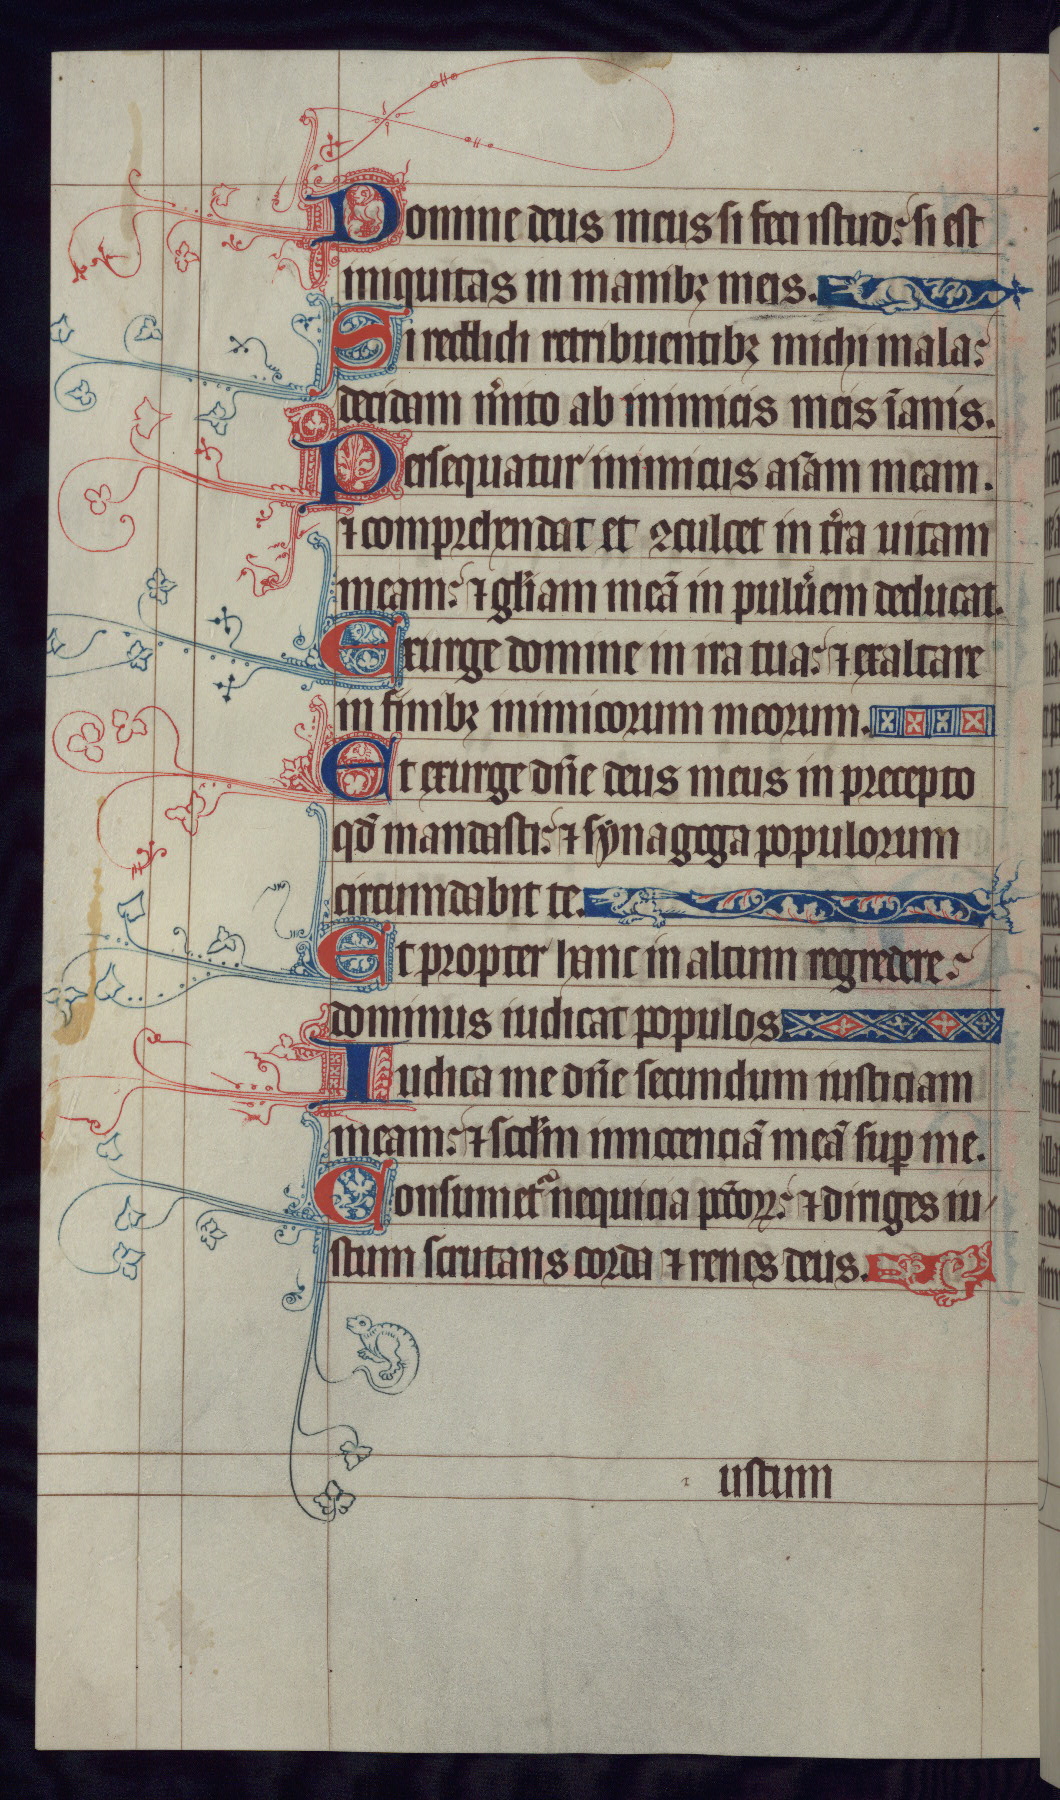 Domine deus meus si feci istud: si est
iniquitas in manibꝫ meis.
Si reddidi retribuentibꝫ michi mala:
decidam m̾ito ab inimicis meis īanis.
Persequatur inimicus aīam meam.
⁊ comprehendat et ꝯculcet in t̾ra uitam
meam: ⁊ gl̄iam meā in pulu̾em deducat.
Exurge domine in ira tua: ⁊ exaltare
in finibꝫ inimicorum meorum.
Et exurge dn̄e deus meus in precepto
qd̄ mandasti: ⁊ synagoga populorum
circumdabit te.
Et propter hanc in altum regredere:
dominus iudicat populos
Iudica me dn̄e secundum iusticiam
meam: ⁊ scd̄m innocenciā meā sup̱ me.
Consumet᷑ nequicia pc̄toꝝ: ⁊ diriges iu/
stum scrutans corda ⁊ renes deus.
ustum